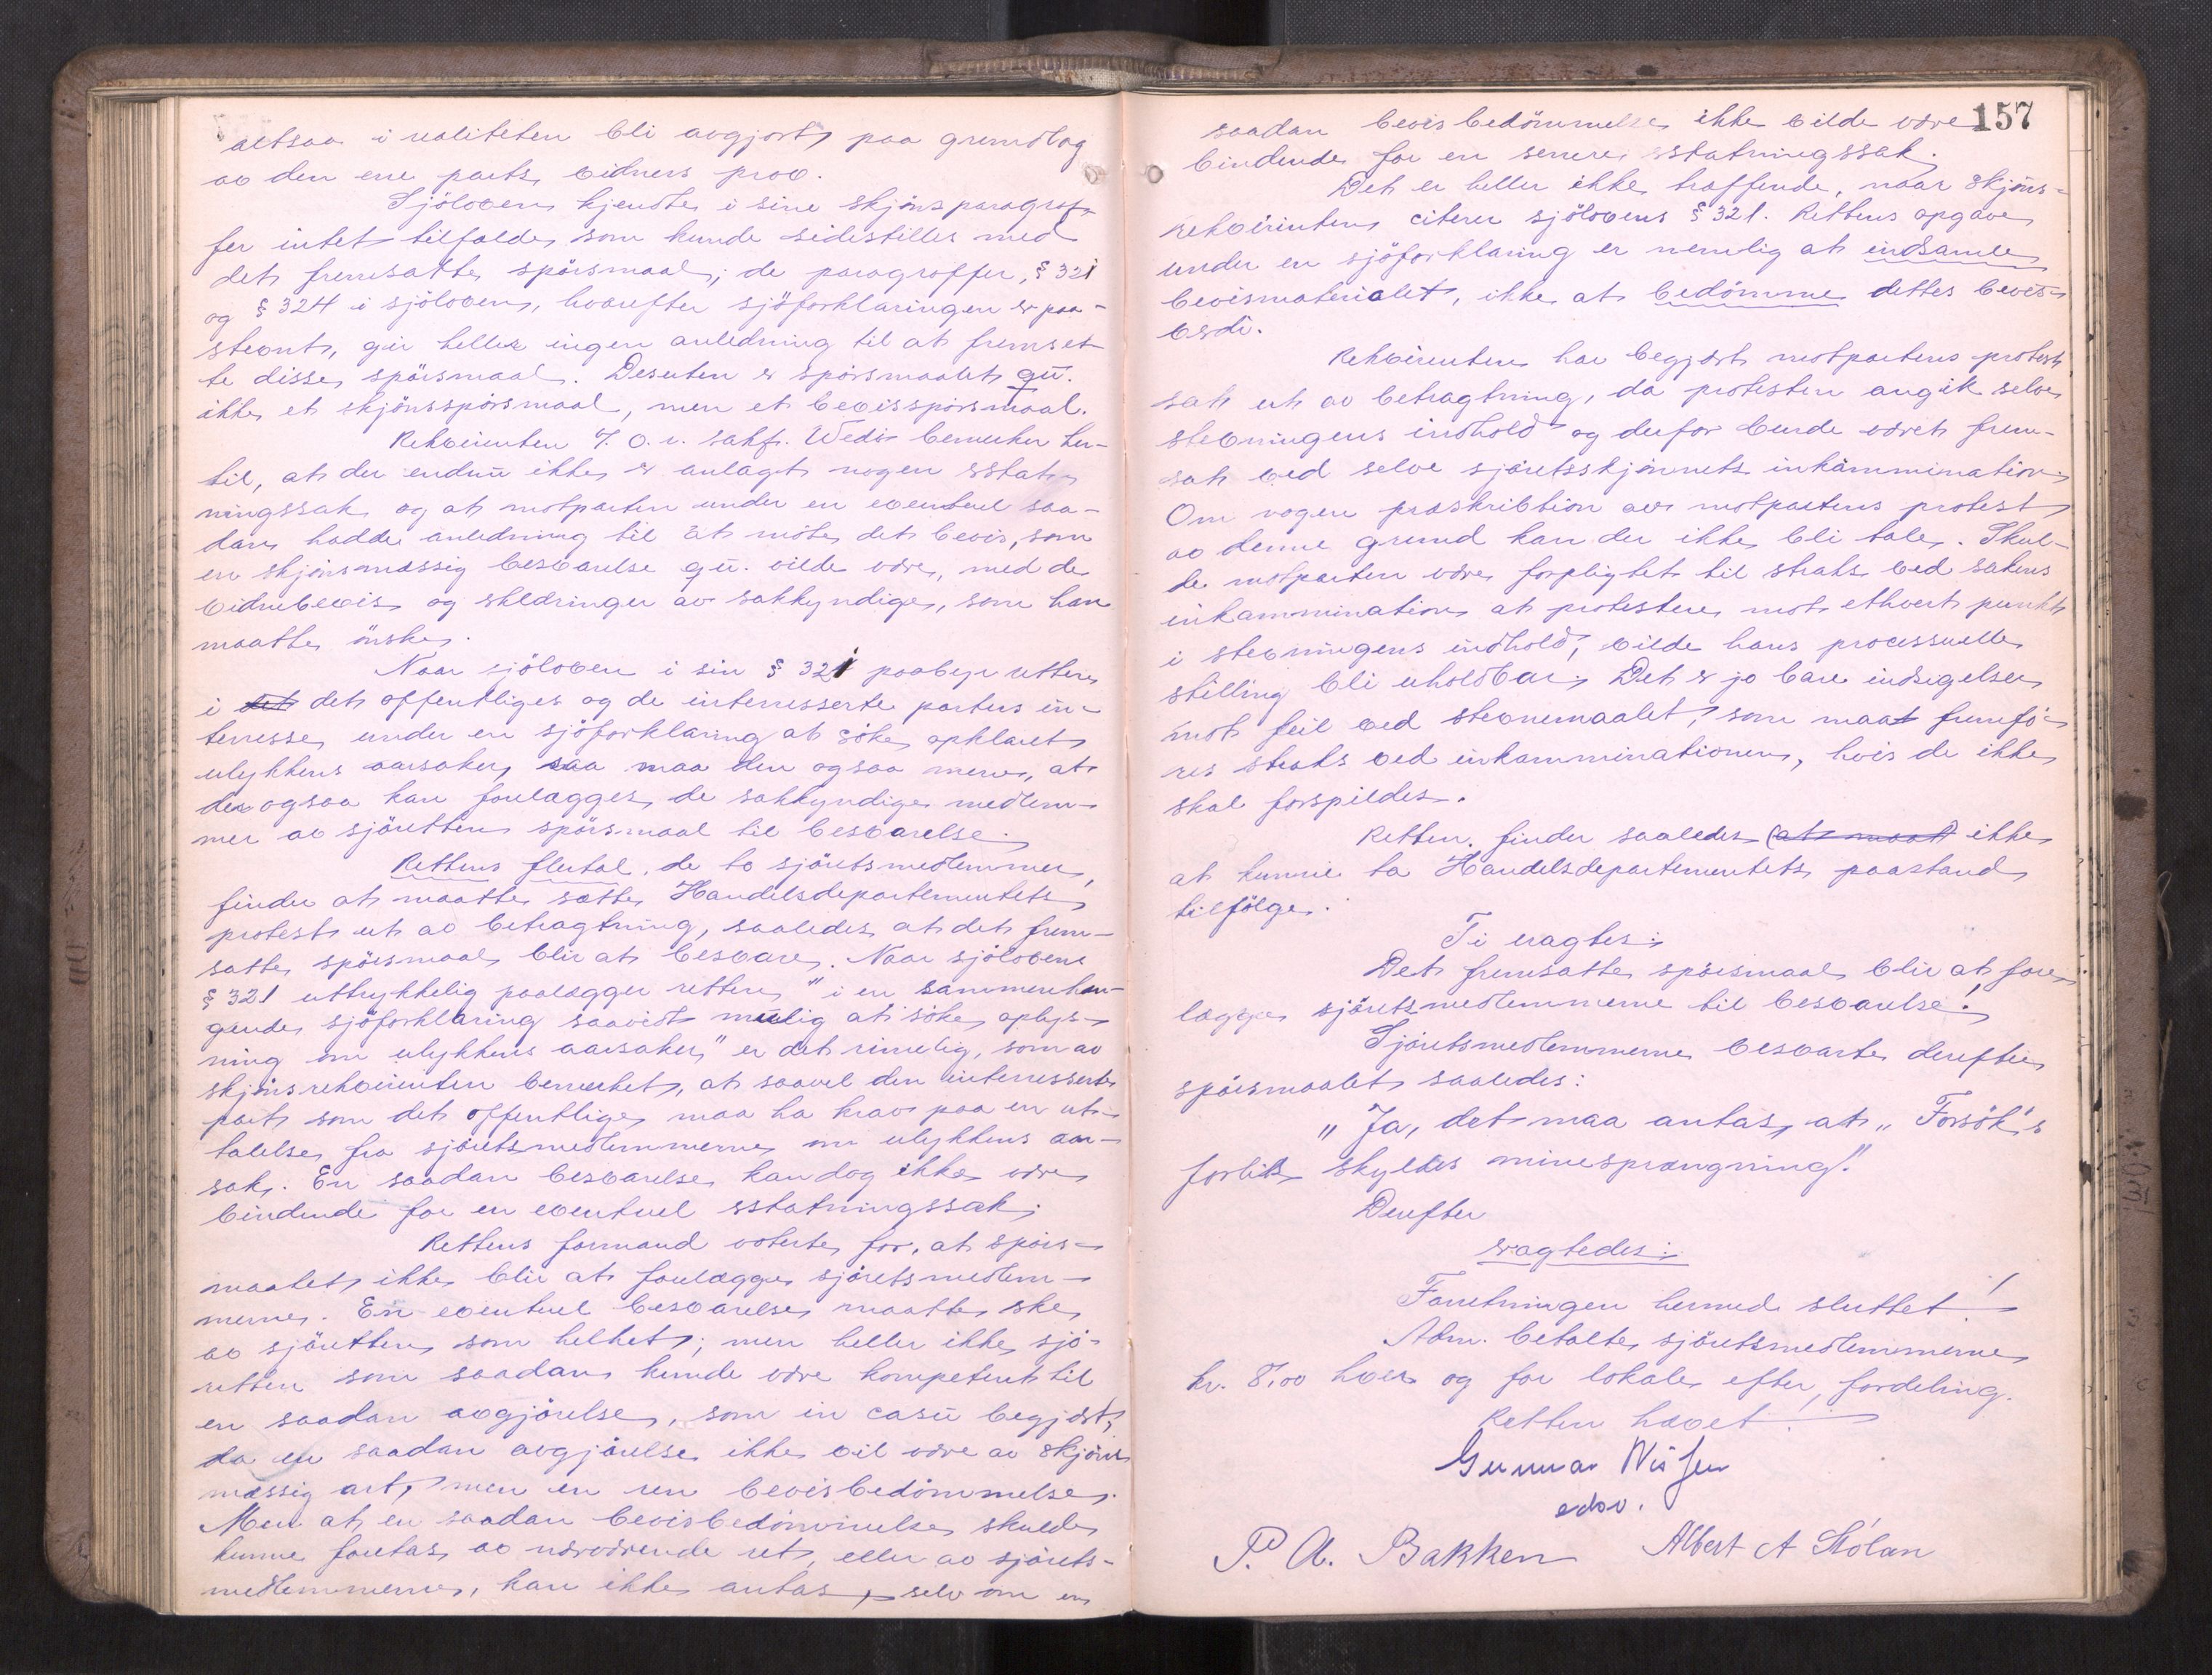 altsaa i realiteten bli avgjort paa grundlag
av den ene parts vidners prov.
Sjöloven kjendte i sine skjönsparagraf-
fer intet tilfælde som kunde sidestilles med
det fremsatte spörsmaal; de paragraffer, § 321
og § 324 i sjöloven, hvorefter sjöforklaringen er paa-
stevnt, gir heller ingen anledning til at fremset-
te disse spörsmaal. Desuten er spörsmaalet qu.
ikke et skjönsspörsmaal, men et bevisspörsmaal.
Rekvirenten v. o.r. sakf. Wedø bemerker her-
til, at der endnu ikke er anlagt nogen erstat-
ningssak og at motparten under en eventuel saa-
dan hadde anledning til at möte det bevis, som
en skjönsmæssig besvarelse qu. vilde være, med de
vidnebevis og erklæringer av sakkyndige, som han
maatte önske.
Naar sjöloven i sin § 321 paabyr retten
i det det offentliges og de interesserte parters in-
terresse under en sjöforklaring at söke opklaret
ulykkens aarsaker, saa maa den ogsaa mene, at
der ogsaa kan forelægges de sakkyndige medlem-
mer av sjöretten spörsmaal til besvarelse.
Rettens flertal, de to sjöretsmedlemmer,
finder at maatte sætte Handelsdepartementets
protest ut av betragtning, saaledes at det frem-
satte spörsmaal blir at besvare. Naar sjölovens
§ 321 uttrykkelig paalægger retten "i en sammenhæn-
gende sjöforklaring saavidt mulig at söke oplys-
ning om ulykkens aarsaker," er det rimelig, som av
skjönsrekvirenten bemerket, at saavel den interesserte
part som det offentlige maa ha krav paa en ut-
talelse fra sjöretsmedlemmerne om ulykkens aar-
sak. En saadan besvarelse kan dog ikke være
bindende for en eventuel erstatningssak.
Rettens formand voterte for, at spörs-
maalet ikke blir at forelægge sjöretsmedlem-
merne. En eventuel besvarelse maatte ske
av sjöretten som helhet; men heller ikke sjö-
retten som saadan kunde være kompetent til
en saadan avgjörelse, som in casu begjært,
da en saadan avgjörelse ikke vil være av skjöns-
mæssig art, men en ren bevisbedömmelse.
Men at en saadan bevisbedömmelse skulde
kunne foretas av nærværende ret, eller av sjörets-
medlemmerne, kan ikke antas, selv om en
157
saadan bevisbedömmelse ikke vilde være
bindende for en senere erstatningssak.
Det er heller ikke træffende, naar skjöns-
rekvirenten citerer sjölovens § 321. Rettens opgave
under en sjöforklaring er nemlig at indsamle
bevismaterialet, ikke at bedömme dettes bevis-
værdi.
Rekvirenten har begjært motpartens protest
sat ut av betragtning, da protesten angik selve
stevningens indhold og derfor burde været frem-
sat ved selve sjöretsskjönnets inkammination.
Om nogen præskribtion av motpartens protest
av denne grund kan der ikke bli tale. Skul-
de motparten være forpligtet til straks ved sakens
inkammination at protestere mot ethvert punkt
i stevningens indhold, vilde hans processuelle
stilling bli uholdbar. Det er jo bare indsigelser
mot feil ved stevnemaalet, som maat fremfö-
res straks ved inkamminationen, hvis de ikke
skal forspildes.
Retten finder saaledes (at maat) ikke
at kunne ta Handelsdepartementets paastand
tilfölge.
Ti eragtes:
Det fremsatte spörsmaal blir at fore-
lægge sjöretsmedlemmerne til besvarelse!
Sjöretsmedlemmerne besvarte derefter
spörsmaalet saaledes:
"Ja, det maa antas, at "Forsök's
forlis skyldes minesprængning."
Derefter
eragtedes:
Forretningen hermed sluttet!
Adm. betalte sjöretsmedlemmerne
kr. 8,00 hver og for lokale efter fordeling.
Retten hævet!
Gunnar Nissen
edsv.
P. A. Bakken Albert A Stólan